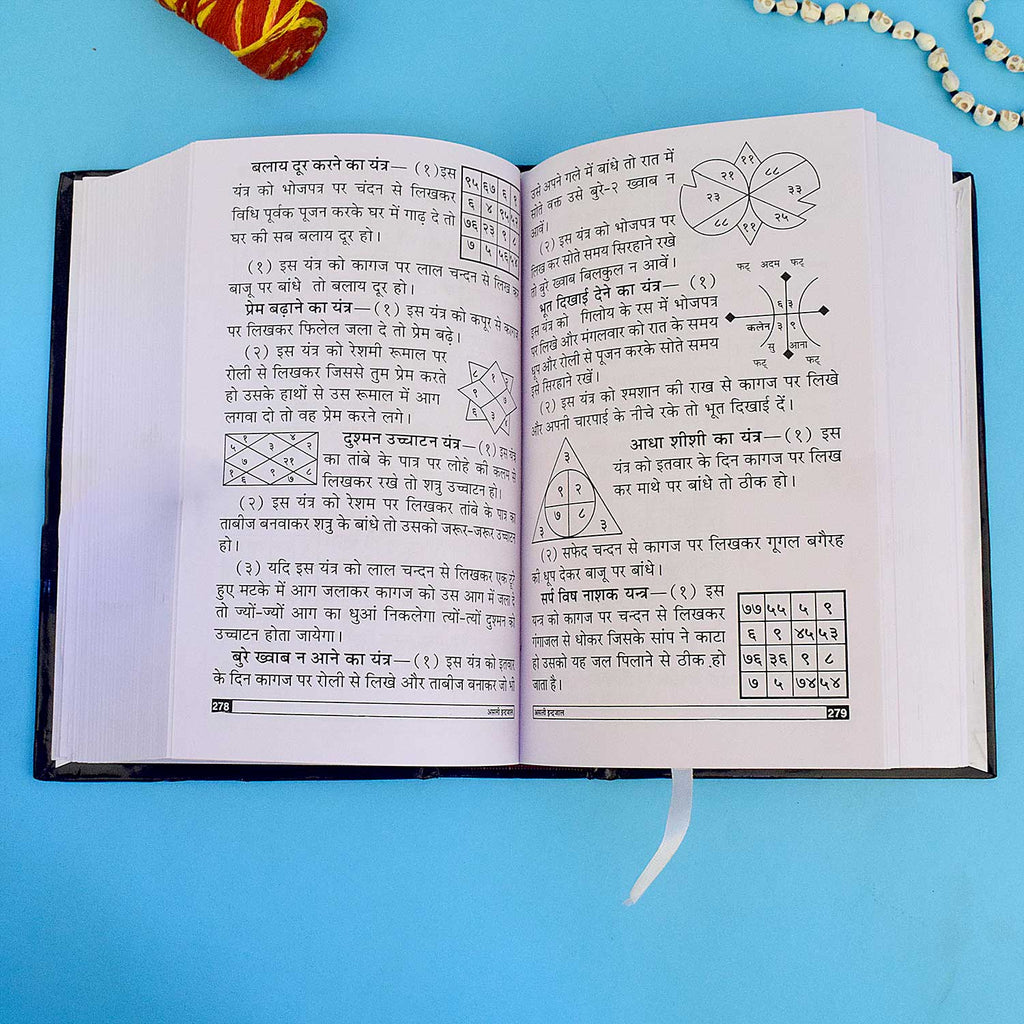 बलाय दूर करने का यंत्र— (१) इस
यंत्र को भोजपत्र पर चंदन से लिखकर
विधि पूर्वक पूजन करके घर में गाढ़ दे तो
घर की सब बलाय दूर हो।
९५ ६७ ६ १
६ ४ ९५
७६ २३ ९ ८
७ ५ ५६ ५४
(१) इस यंत्र को कागज पर लाल चन्दन से लिख कर
बाजू पर बांधे तो बलाय दूर हो।
प्रेम बढ़ाने का यंत्र— (१) इस यंत्र को कपूर से कागज
पर लिखकर फिलेल जला दे तो प्रेम बढ़े।
(२) इस यंत्र को रेशमी रूमाल पर
रोली से लिखकर जिससे तुम प्रेम करते
हो उसके हाथों से उस रूमाल में आग
लगवा दो तो वह प्रेम करने लगे।
दुश्मन उच्चाटन यंत्र—(१) इस यंत्र
का तांबे के पात्र पर लोहे की कलम से
लिखकर रखे तो शत्रु उच्चाटन हो।
(२) इस यंत्र को रेशम पर लिखकर तांबे के पात्र का
ताबीज बनवाकर शत्रु के बांधे तो उसको जरूर-जरूर उच्चाटन
हो।
(३) यदि इस यंत्र को लाल चन्दन से लिखकर एक टूटे
हुए मटके में आग जलाकर कागज को उस आग में जला दे
तो ज्यों-ज्यों आग का धुआं निकलेगा त्यों-त्यों दुश्मन को
उच्चाटन होता जायेगा।
बुरे ख्वाब न आने का यंत्र—(१) इस यंत्र को इतवार
के दिन कागज पर रोली से लिखे और ताबीज बनाकर जो भी
278
असली इन्द्रजाल
उसे अपने गले में बांधे तो रात में
सोते वक्त उसे बुरे-२ ख्वाब न
आवें।
(२) इस यंत्र को भोजपत्र पर
लिख कर सोते समय सिरहाने रखे
तो बुरे ख्वाब बिलकुल न आवें।
११
२१ ८८
२३ ३३
८८ २५
११
भूत दिखाई देने का यंत्र— (१)
इस यंत्र को गिलोय के रस में भोजपत्र
पर लिखे और मंगलवार को रात के समय
धूप और रोली से पूजन करके सोते समय
इसे सिरहाने रखें।
फट् अदम फट्
६ ३
कलेन ३ ९
सु आना
फट् फट्
(२) इस यंत्र को श्मशान की राख से कागज पर लिखे
और अपनी चारपाई के नीचे रके तो भूत दिखाई दें।
आधा शीशी का यंत्र—(१) इस
यंत्र को इतवार के दिन कागज पर लिख
कर माथे पर बांधे तो ठीक हो।
३
९ २
७ ८
३ ३
(२) सफेद चन्दन से कागज पर लिखकर गूगल बगैरह
की धूप देकर बाजू पर बांधे।
सर्प विष नाशक यन्त्र—(१) इस
यन्त्र को कागज पर चन्दन से लिखकर
गंगाजल से धोकर जिसके सांप ने काटा
हो उसको यह जल पिलाने से ठीक हो
जाता है।
७७ ५५ ५ ९
६ ९ ४५ ५३
७६ ३६ ९ ८
७ ५ ७४ ५४
असली इन्द्रजाल
279